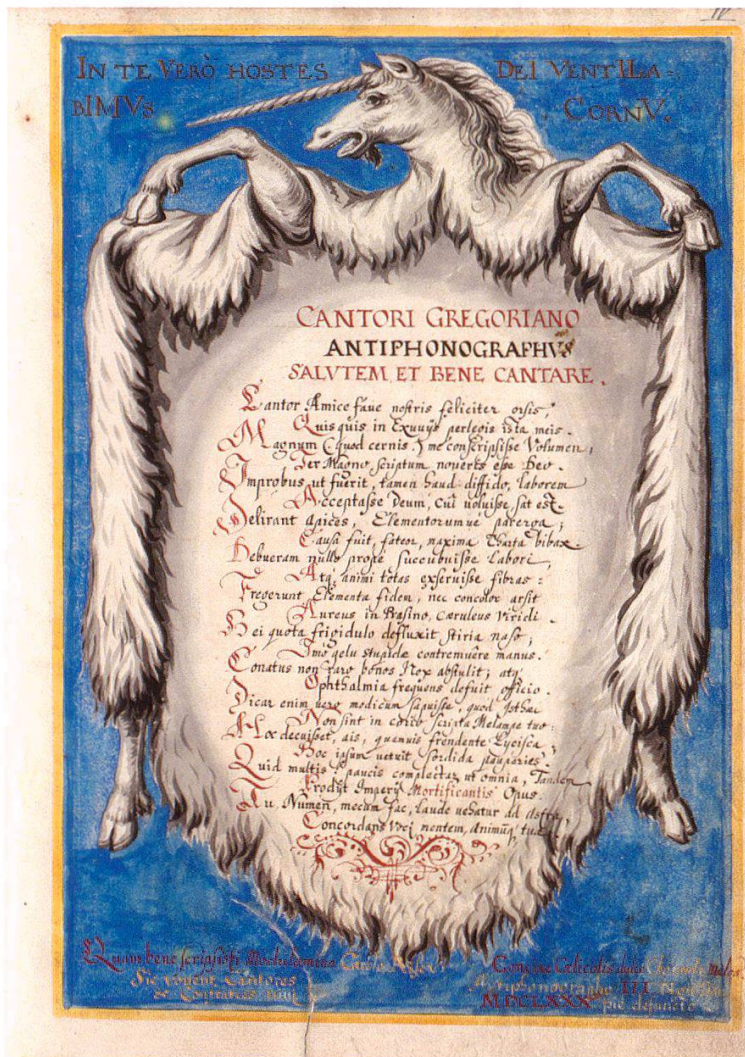 IN TE VERÒ HOSTES DEI VENTILA=
BIMVS CORNV.
CANTORI GREGORIANO
ANTIPHONOGRAPHVS
SALVTEM ET BENE CANTARE.
Cantor Amice fave nostris feliciter orsis,
Quisquis in Exuvijs perlegis ista meis.
Magnum (quod cernis) me conscripsisse Volumen,
Ter Magno scriptum noveris esse Deo.
Improbus ut fuerit, tamen haud diffido, laborem
Acceptasse Deum, cui voluisse sat est.
Delirant apices, Elementorumve parerga,
Causa fuit, fateor, maxima Charta bibax.
Debueram nullo prope succubuisse labori,
Atq, animi totas exseruisse fibras:
Fregerunt Elementa fidem, nec concolor arsit
Aureus in Prasino, cæruleus viridi.
Hei quota frigidulo defluxit stiria naso,
Imo gelu stupidæ contremuere manus.
Conatus non raro bonos Nox abstulit; atq,
Ophthalmia frequens defuit officio.
Dicar enim vero modicum sapuisse, quod
Non sint in scripta Melampe tuo:
Hoc decuisset, ais, quamvis frendente Lycisca,
Hoc ipsum vetuit sordida pauperies.
Quid multis? paucis complectar ut omnia, Tandem
Prodijt Imperij Mortificantis Opus.
Tu, Numen, mecum fac, laude vehatur ad Astra,
Concordans voci mentem, animumq,
Quam bene scripsisti
Sic rogent Cantores
III
MDCLXXX pie defuncto